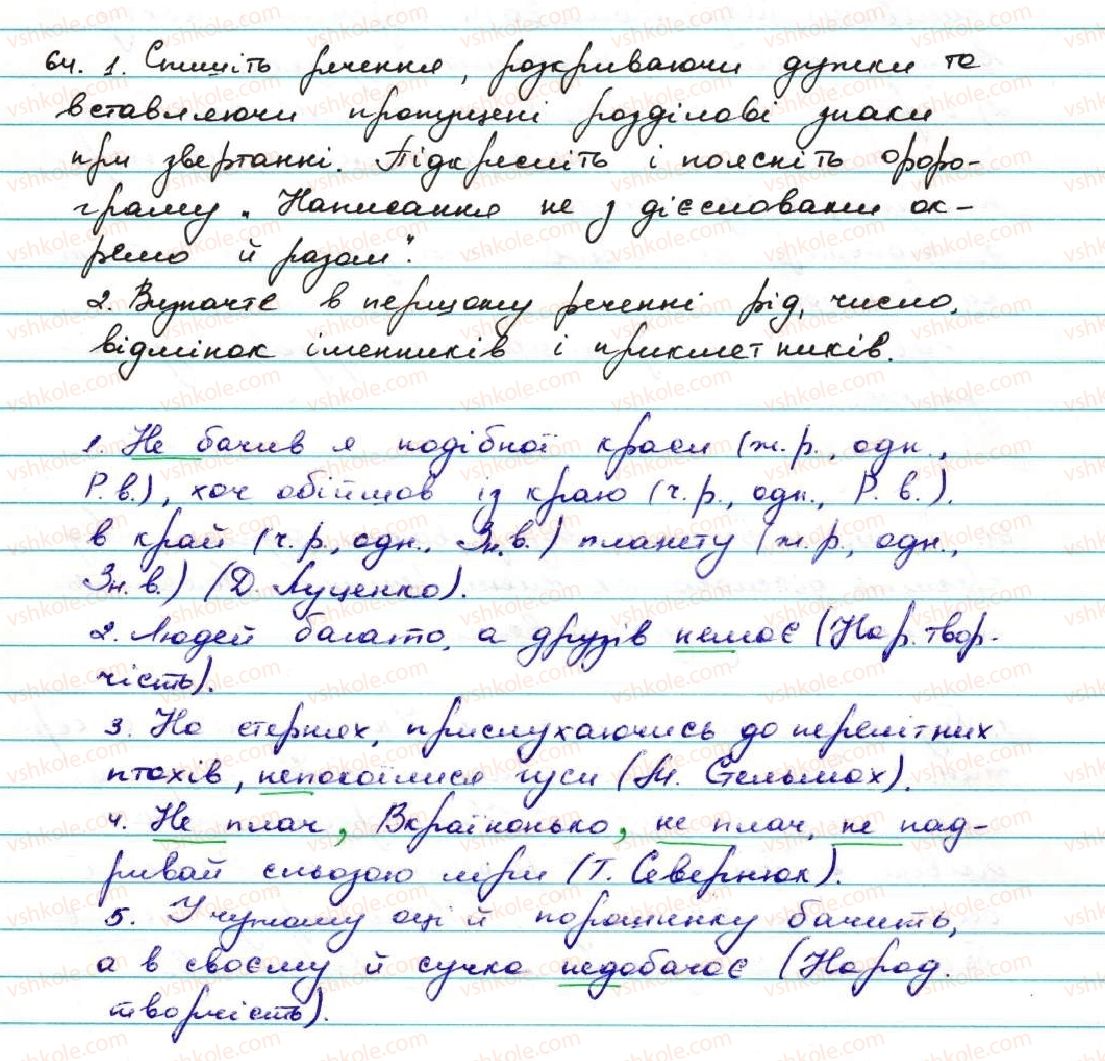 64. 1. Спишіть речення, розкриваючи дужки та
вставляючи пропущені розділові знаки
при звертанні. Підкресліть і поясніть орфо-
граму „Написання не з дієсловами ок-
ремо й разом".
2. Визначте в першому реченні рід, число,
відмінок іменників і прикметників.
1. Не бачив я подібної краси (ж. р., одн.,
Р. в.), хоч обійшов із краю (ч. р., одн., Р. в.).
в край (ч. р., одн., Зн. в.) планету (ж. р., одн.,
Зн. в.) (Д. Луценко).
2. Людей багато, а друзів немає (Нар. твор-
чість).
3. На стернях, прислухаючись до перелітних
птахів, непокоїлися гуси (М. Стельмах).
4. Не плач, Вкраїнонько, не плач, не над-
ривай сльозою ліри (Т. Севернюк).
5. У чужому оці й порошинку бачить,
а в своєму й сучка недобачає (Народ.
творчість).